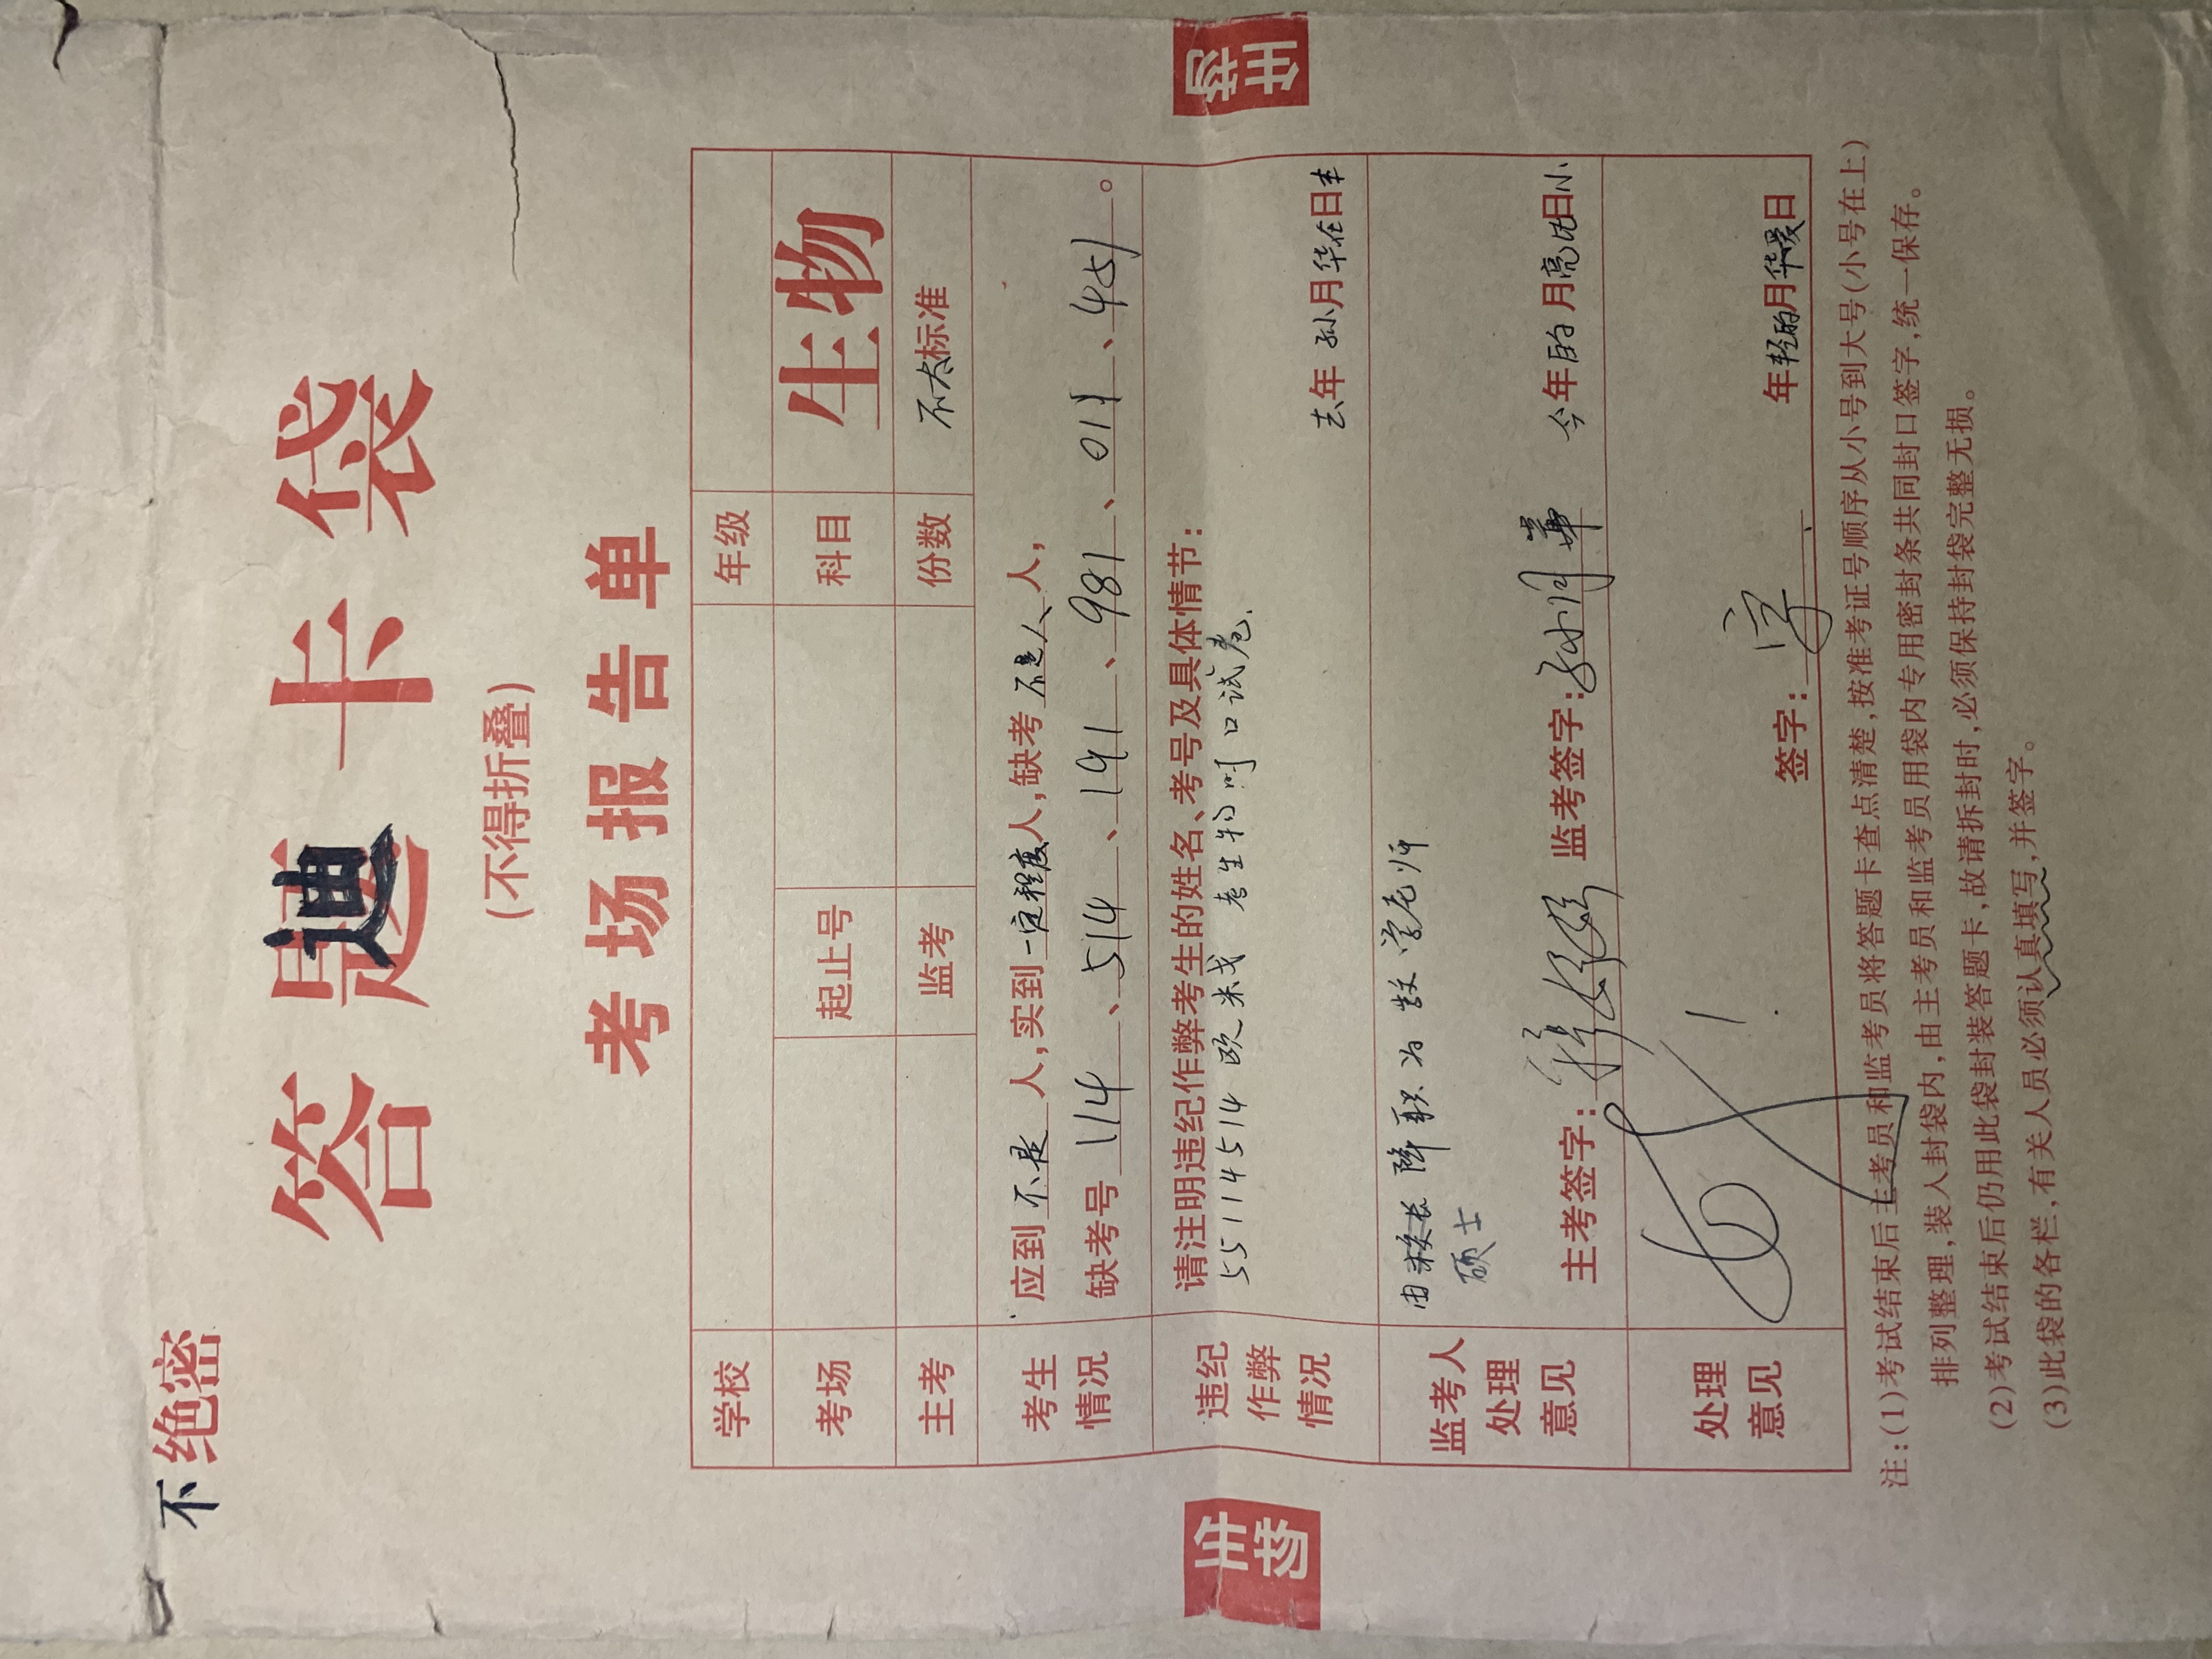 不绝密
答迪卡袋
(不得折叠)
考场报告单
学校 年级
考场 起止号 科目 生物
主考 监考 份数 不太标准
考生情况
应到不是人,实到一定程度人,缺考不是人人,
缺考号 114、514、191、981、011、451。
生物
生物
违纪作弊情况
请注明违纪作弊考生的姓名、考号及具体情节:
55114514 欧米戈 考生物时口试卷.
去年孙月华在日本
监考人处理意见
由校长降职为数学老师
硕士
主考签字: 监考签字:孙小月華 今年的月亮比日小
处理意见
!
签字:字. 年轻的月华爱日
注:(1)考试结束后主考员和监考员将答题卡查点清楚,按准考证号顺序从小号到大号(小号在上)
排列整理,装入封袋内,由主考员和监考员用袋内专用密封条共同封口签字,统一保存。
(2)考试结束后仍用此袋封装答题卡,故请拆封时,必须保持封袋完整无损。
(3)此袋的各栏,有关人员必须认真填写,并签字。